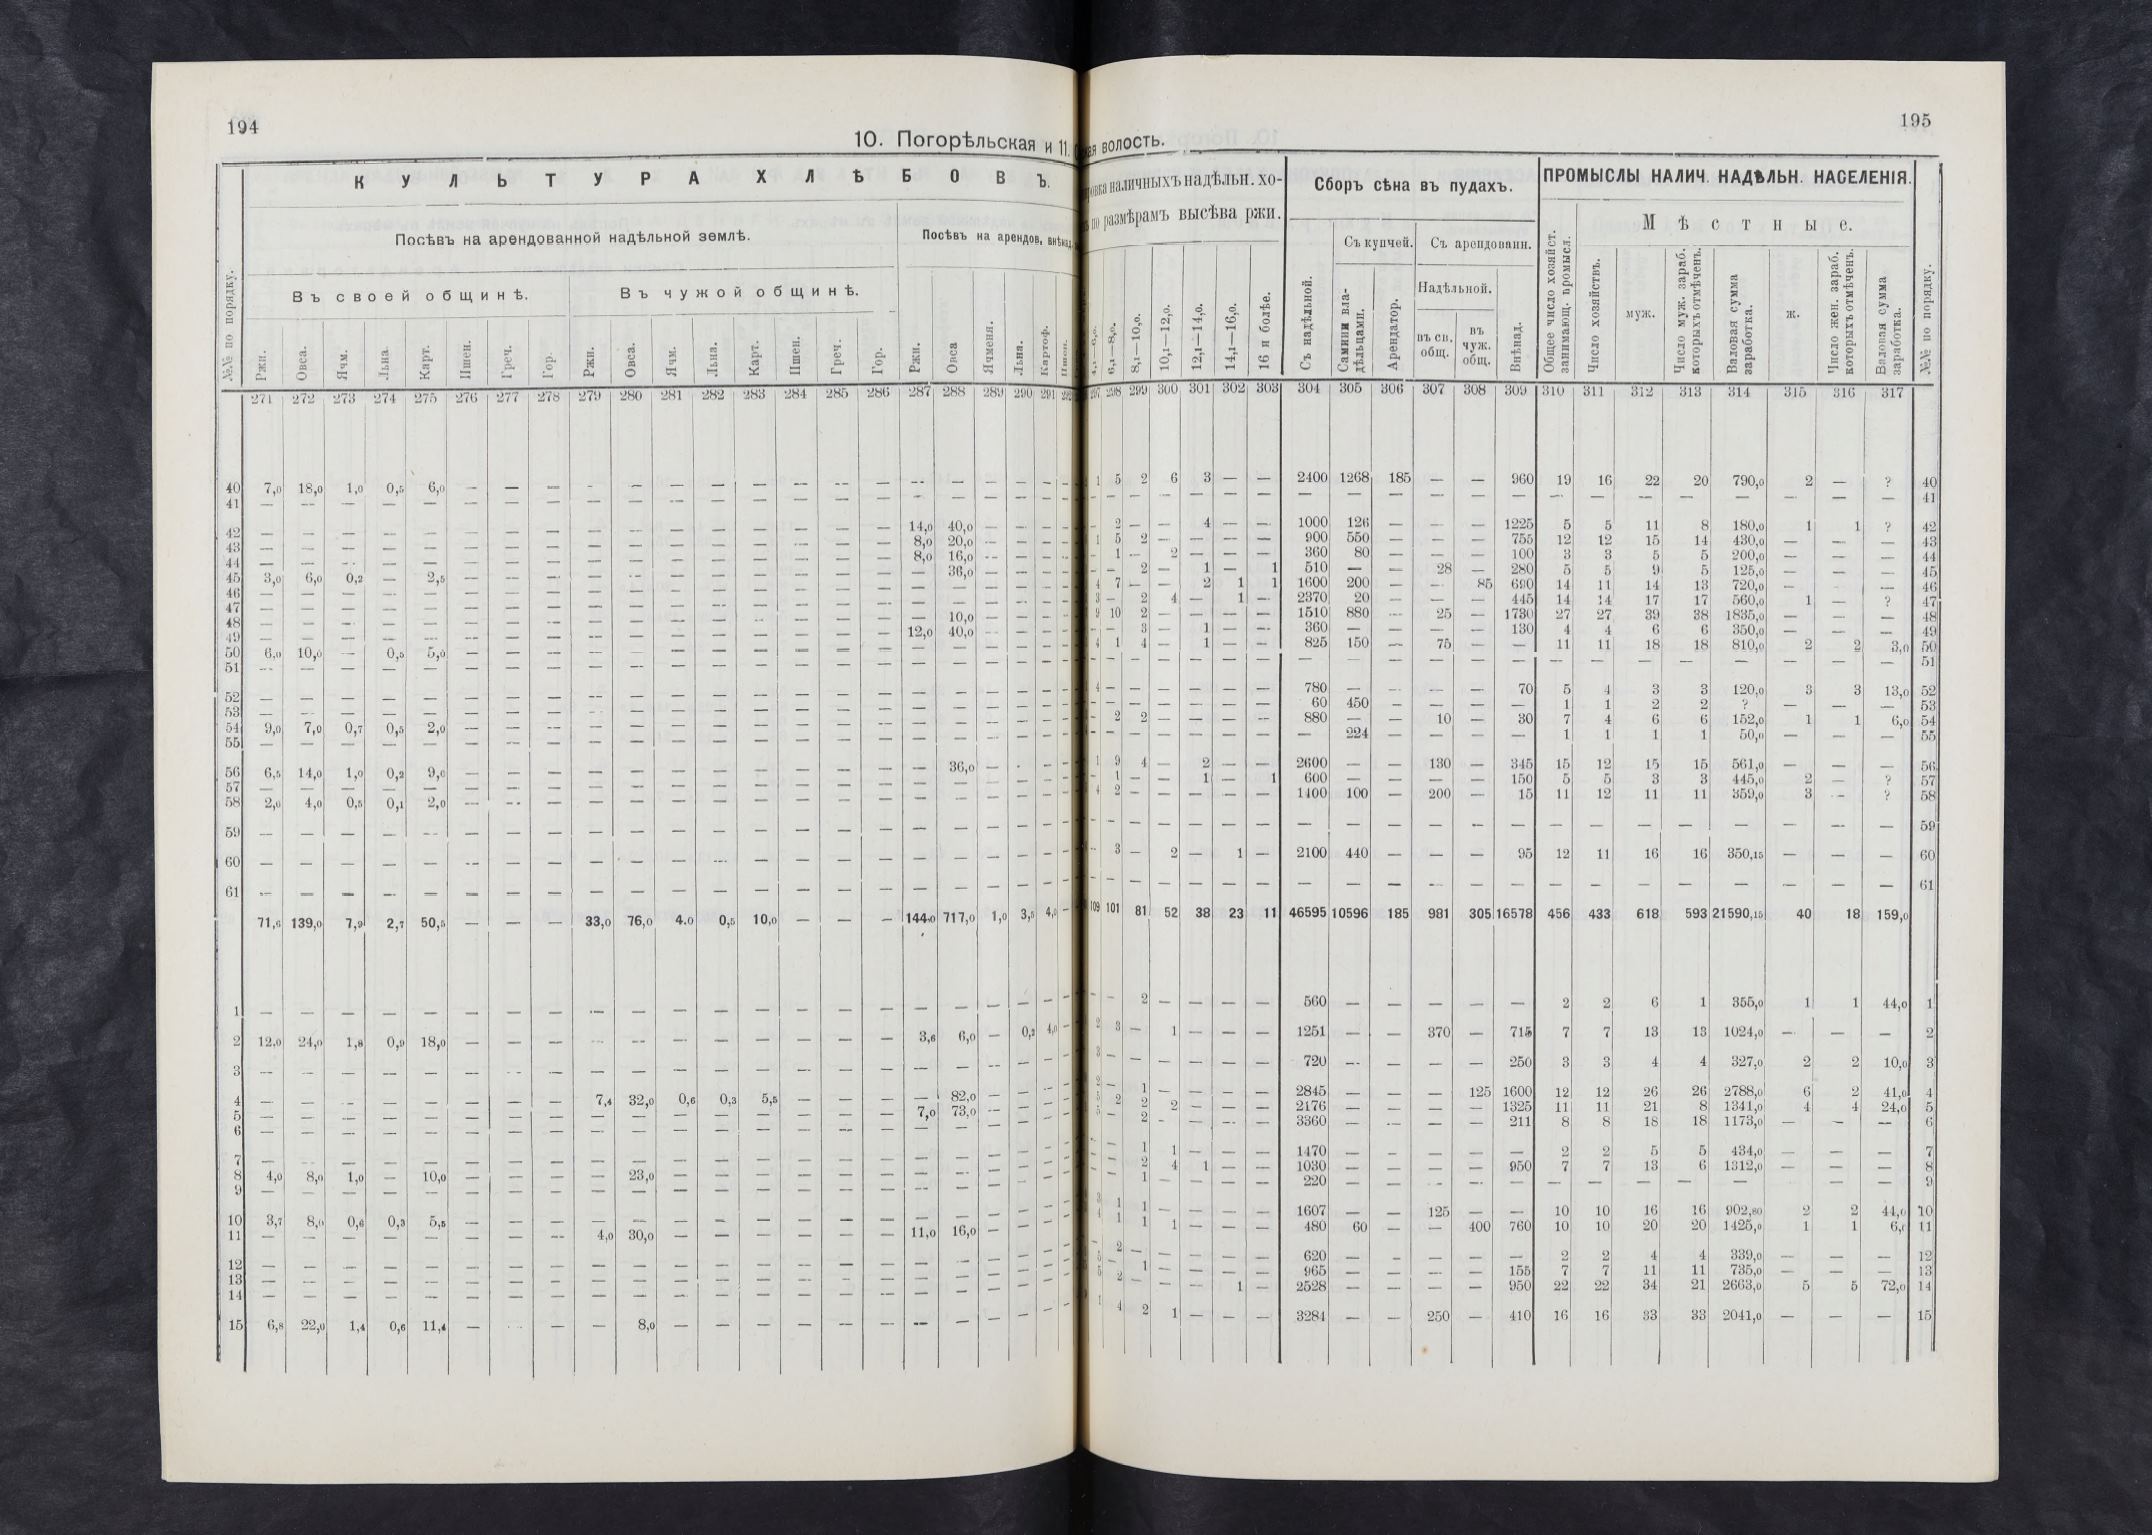 194
10. Погорѣльская и 11.
КУЛЬТУРА ХЛѢБОВЪ.
Посѣвъ на арендованной надѣльной землѣ.
Посѣвъ на арендов. внѣнад.
№№ по порядку.
Въ своей общинѣ.
Въ чужой общинѣ.
Ржи. Овса. Ячм. Льна. Карт. Пшен. Греч. Гор. Ржи. Овса. Ячм. Льна. Карт. Пшен. Греч. Гор. Ржи. Овса Ячменя. Льна. Картоф. Пшен.
271 272 273 274 275 276 277 278 279 280 281 282 283 284 285 286 287 288 289 290 291
40 7,0 18,0 1,0 0,5 6,0 — — — - — — — — — — — — — — — — —
41 — — — — — — — — — — — — — — — — — — — — — —
42 — — — — — — — — — — — — — — — — 14,0 40,0 — — — —
43 — — — — — — — — — — — — — — — — 8,0 20,0 — — — —
44 — — — — — — — — — — — — — — — — 8,0 16,0 — — — —
45 3,0 6,0 0,2 — 2,5 — — — — — — — — — — — — 36,0 — — — —
46 — — — — — — — — — — — — — — — — — — — — — —
47 — — — — — — — — — — — — — — — — — — — — — —
48 — — — — — — — — — — — — — — — — — 10,0 — — — —
49 — — — — — — — — — — — — — — — — 12,0 40,0 — — — —
50 6,0 10,0 — 0,5 5,0 — — — — — — — — — — — — — — — — —
51 — — — — — — — — — — — — — — — — — — — — — —
52 — — — — — — — — — — — — — — — — — — — — — —
53 — — — — — — — — — — — — — — — — — — — — — —
54 9,0 7,0 0,7 0,5 2,0 — — — — — — — — — — — — — — — — —
55 — — — — — — — — — — — — — — — — — — — — — —
56 6,5 14,0 1,0 0,2 9,0 — — — — — — — — — — — — 36,0 — - — —
57 — — — — — — — — — — — — — — — — — — — — — —
58 2,0 4,0 0,5 0,1 2,0 — — — — — — — — — — — — — — — — —
59 — — — — — — — — — — — — — — — — — — — — — —
60 — — — — — — — — — — — — — — — — — — — — — —
61 — — — — — — — — — — — — — — — — — — — — — —
71,6 139,0 7,9 2,7 50,5 — — — 33,0 76,0 4,0 0,5 10,0 — — — 144,0 717,0 1,0 3,5 4,0 —
1 — — — — — — — — — — — — — — — — — — — — — —
2 12,0 24,0 1,8 0,9 18,0 — — — — — — — — — — — 3,6 6,0 — 0,3 4,0 —
3 — — — — — — — — — — — — — — — — — — — — — —
4 — — — — — — — — 7,4 32,0 0,6 0,3 5,5 — — — — 82,0 — — — —
5 — — — — — — — — — — — — — — — — 7,0 73,0 — — — —
6 — — — — — — — — — — — — — — — — — — — — — —
7 — — — — — — — — — — — — — — — — — — — — — —
8 4,0 8,0 1,0 — 10,0 — — — — 23,0 — — — — — — — — — — — —
9 — — — — — — — — — — — — — — — — — — — — — —
10 3,7 8,0 0,6 0,3 5,5 — — — — — — — — — — — — — — — — —
11 — — — — — — — — 4,0 30,0 — — — — — — 11,0 16,0 — — — —
12 — — — — — — — — — — — — — — — — — — — — — —
13 — — — — — — — — — — — — — — — — — — — — — —
14 — — — — — — — — — — — — — — — — — — — — — —
15 6,8 22,0 1,4 0,6 11,4 — - — — 8,0 — — — — — — — — — — — —
195
волость.
наличныхъ надѣльн. хо-
по размѣрамъ высѣва ржи.
Сборъ сѣна въ пудахъ.
ПРОМЫСЛЫ НАЛИЧ. НАДѢЛЬН. НАСЕЛЕНІЯ.
Съ купчей.
Съ арендованн.
Мѣстные.
Надѣльной.
6,1—8,0. 8,1—10,0. 10,1—12,0. 12,1—14,0. 14,1—16,0. 16 и болѣе. Съ надѣльной. Самими вла-дѣльцами. Арендатор. въ св. общ. въ чуж. общ. Внѣнад. Общее число хозяйст. занимающ. промысл. Число хозяйствъ. муж. Число муж. зараб. которыхъ отмѣченъ. Валовая сумма заработка. ж. Число жен. зараб. которыхъ отмѣченъ. Валовая сумма заработка. №№ по порядку.
297 298 299 300 301 302 303 304 305 306 307 308 309 310 311 312 313 314 315 316 317
1 5 2 6 3 — — 2400 1268 185 — — 960 19 16 22 20 790,0 2 — ? 40
— — — — — — — — — — — — — — — — — — — — — 41
— 2 — — 4 — — 1000 126 — — — 1225 5 5 11 8 180,0 1 1 ? 42
1 5 2 — — — — 900 550 — — — 755 12 12 15 14 430,0 — — — 43
— 1 — 2 — — — 360 80 — — — 100 3 3 5 5 200,0 — — — 44
— — 2 — 1 — 1 510 — — 28 — 280 5 5 9 5 125,0 — — — 45
4 7 — — 2 1 1 1600 200 — — 85 690 14 11 14 13 720,0 — — — 46
3 — 2 4 — 1 — 2370 20 — — — 445 14 14 17 17 560,0 1 — ? 47
9 10 2 — — — — 1510 880 — 25 — 1730 27 27 39 38 1835,0 — — — 48
— — 3 — 1 — — 360 — — — — 130 4 4 6 6 350,0 — — — 49
4 1 4 — 1 — — 825 150 — 75 — — 11 11 18 18 810,0 2 2 3,0 50
— — — — — — — — — — — — — — — — — — — — — 51
4 — — — — — — 780 — — — — 70 5 4 3 3 120,0 3 3 13,0 52
— — — — — — — 60 450 — — — — 1 1 2 2 ? — — — 53
— 2 2 — — — — 880 — — 10 — 30 7 4 6 6 152,0 1 1 6,0 54
— — — — — — — — 224 — — — — 1 1 1 1 50,0 — — — 55
1 9 4 — 2 — — 2600 — — 130 — 345 15 12 15 15 561,0 — — — 56
— 1 — — 1 — 1 600 — — — — 150 5 5 3 3 445,0 2 — ? 57
4 2 — — — — — 1400 100 — 200 — 15 11 12 11 11 359,0 3 — ? 58
— — — — — — — — — — — — — — — — — — — — — 59
— 3 — 2 — 1 — 2100 440 — — — 95 12 11 16 16 350,15 — — — 60
— — — — — — — — — — — — — — — — — — — — — 61
109 101 81 52 38 23 11 46595 10596 185 981 305 16578 456 433 618 593 21590,15 40 18 159,0
— — 2 — — — — 560 — — — — — 2 2 6 1 355,0 1 1 44,0 1
2 3 — 1 — — — 1251 — — 370 — 715 7 7 13 13 1024,0 — — — 2
3 — — — — — — 720 — — — — 250 3 3 4 4 327,0 2 2 10,0 3
2 — 1 — — — — 2845 — — — 125 1600 12 12 26 26 2788,0 6 2 41,0 4
5 2 2 2 — — — 2176 — — — — 1325 11 11 21 8 1341,0 4 4 24,0 5
5 — 2 — — — — 3360 — — — — 211 8 8 18 18 1173,0 — — — 6
— — 1 1 — — — 1470 — — — — — 2 2 5 5 434,0 — — — 7
— — 2 4 1 — — 1030 — — — — 950 7 7 13 6 1312,0 — — — 8
— — 1 — — — — 220 — — — — — — — — — — — — — 9
3 1 1 — — — — 1607 — — 125 — — 10 10 16 16 902,80 2 2 44,0 10
4 1 1 1 — — — 480 60 — — 400 760 10 10 20 20 1425,0 1 1 6,0 11
— 2 — — — — — 620 — — — — — 2 2 4 4 339,0 — — — 12
5 — 1 — — — — 965 — — — — 155 7 7 11 11 735,0 — — — 13
5 2 — — — 1 — 2528 — — — — 950 22 22 34 21 2663,0 5 5 72,0 14
1 4 2 1 — — — 3284 — — 250 — 410 16 16 33 33 2041,0 — — — 15